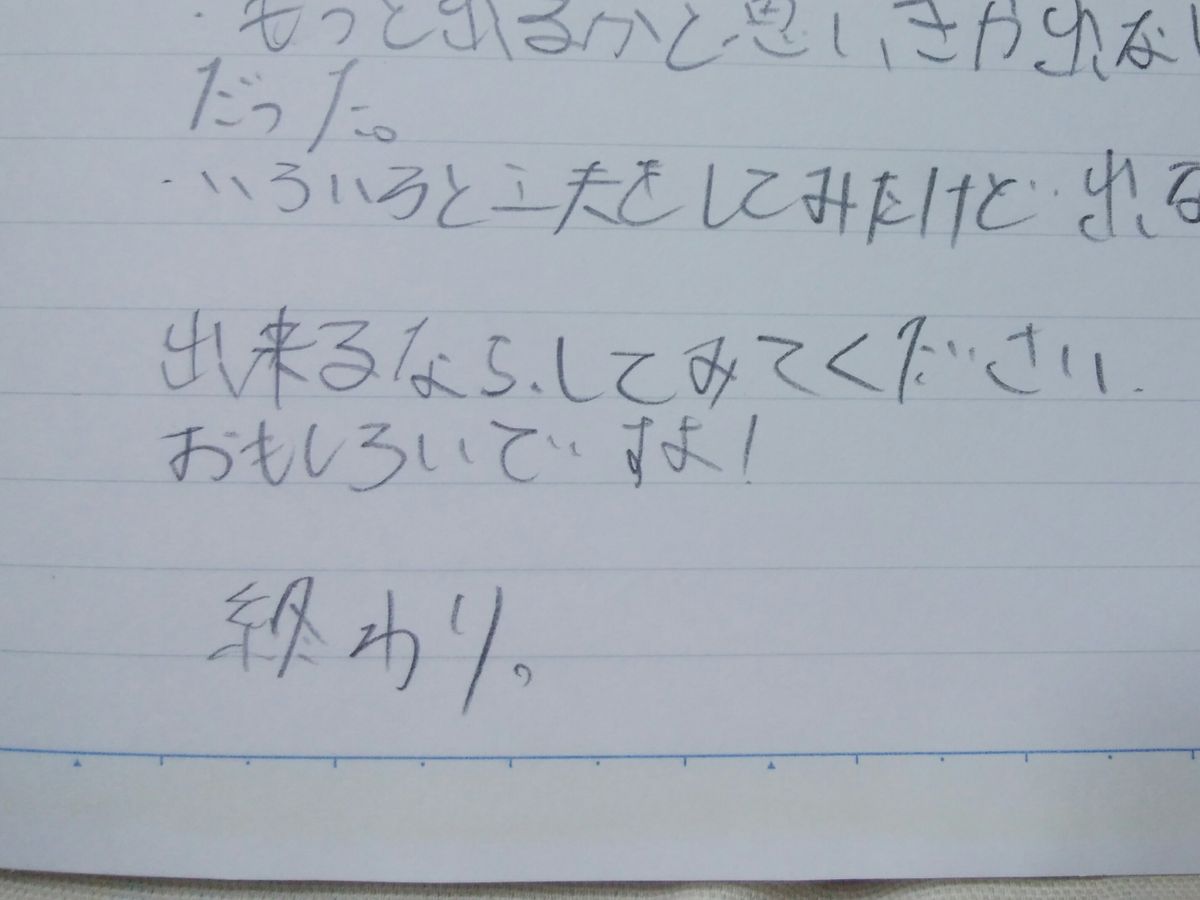 ・もっと出るかと思いきや出ない
だった。
・いろいろと工夫をしてみたけど出る
出来るなら、してみてください。
おもしろいですよ!
終わり。